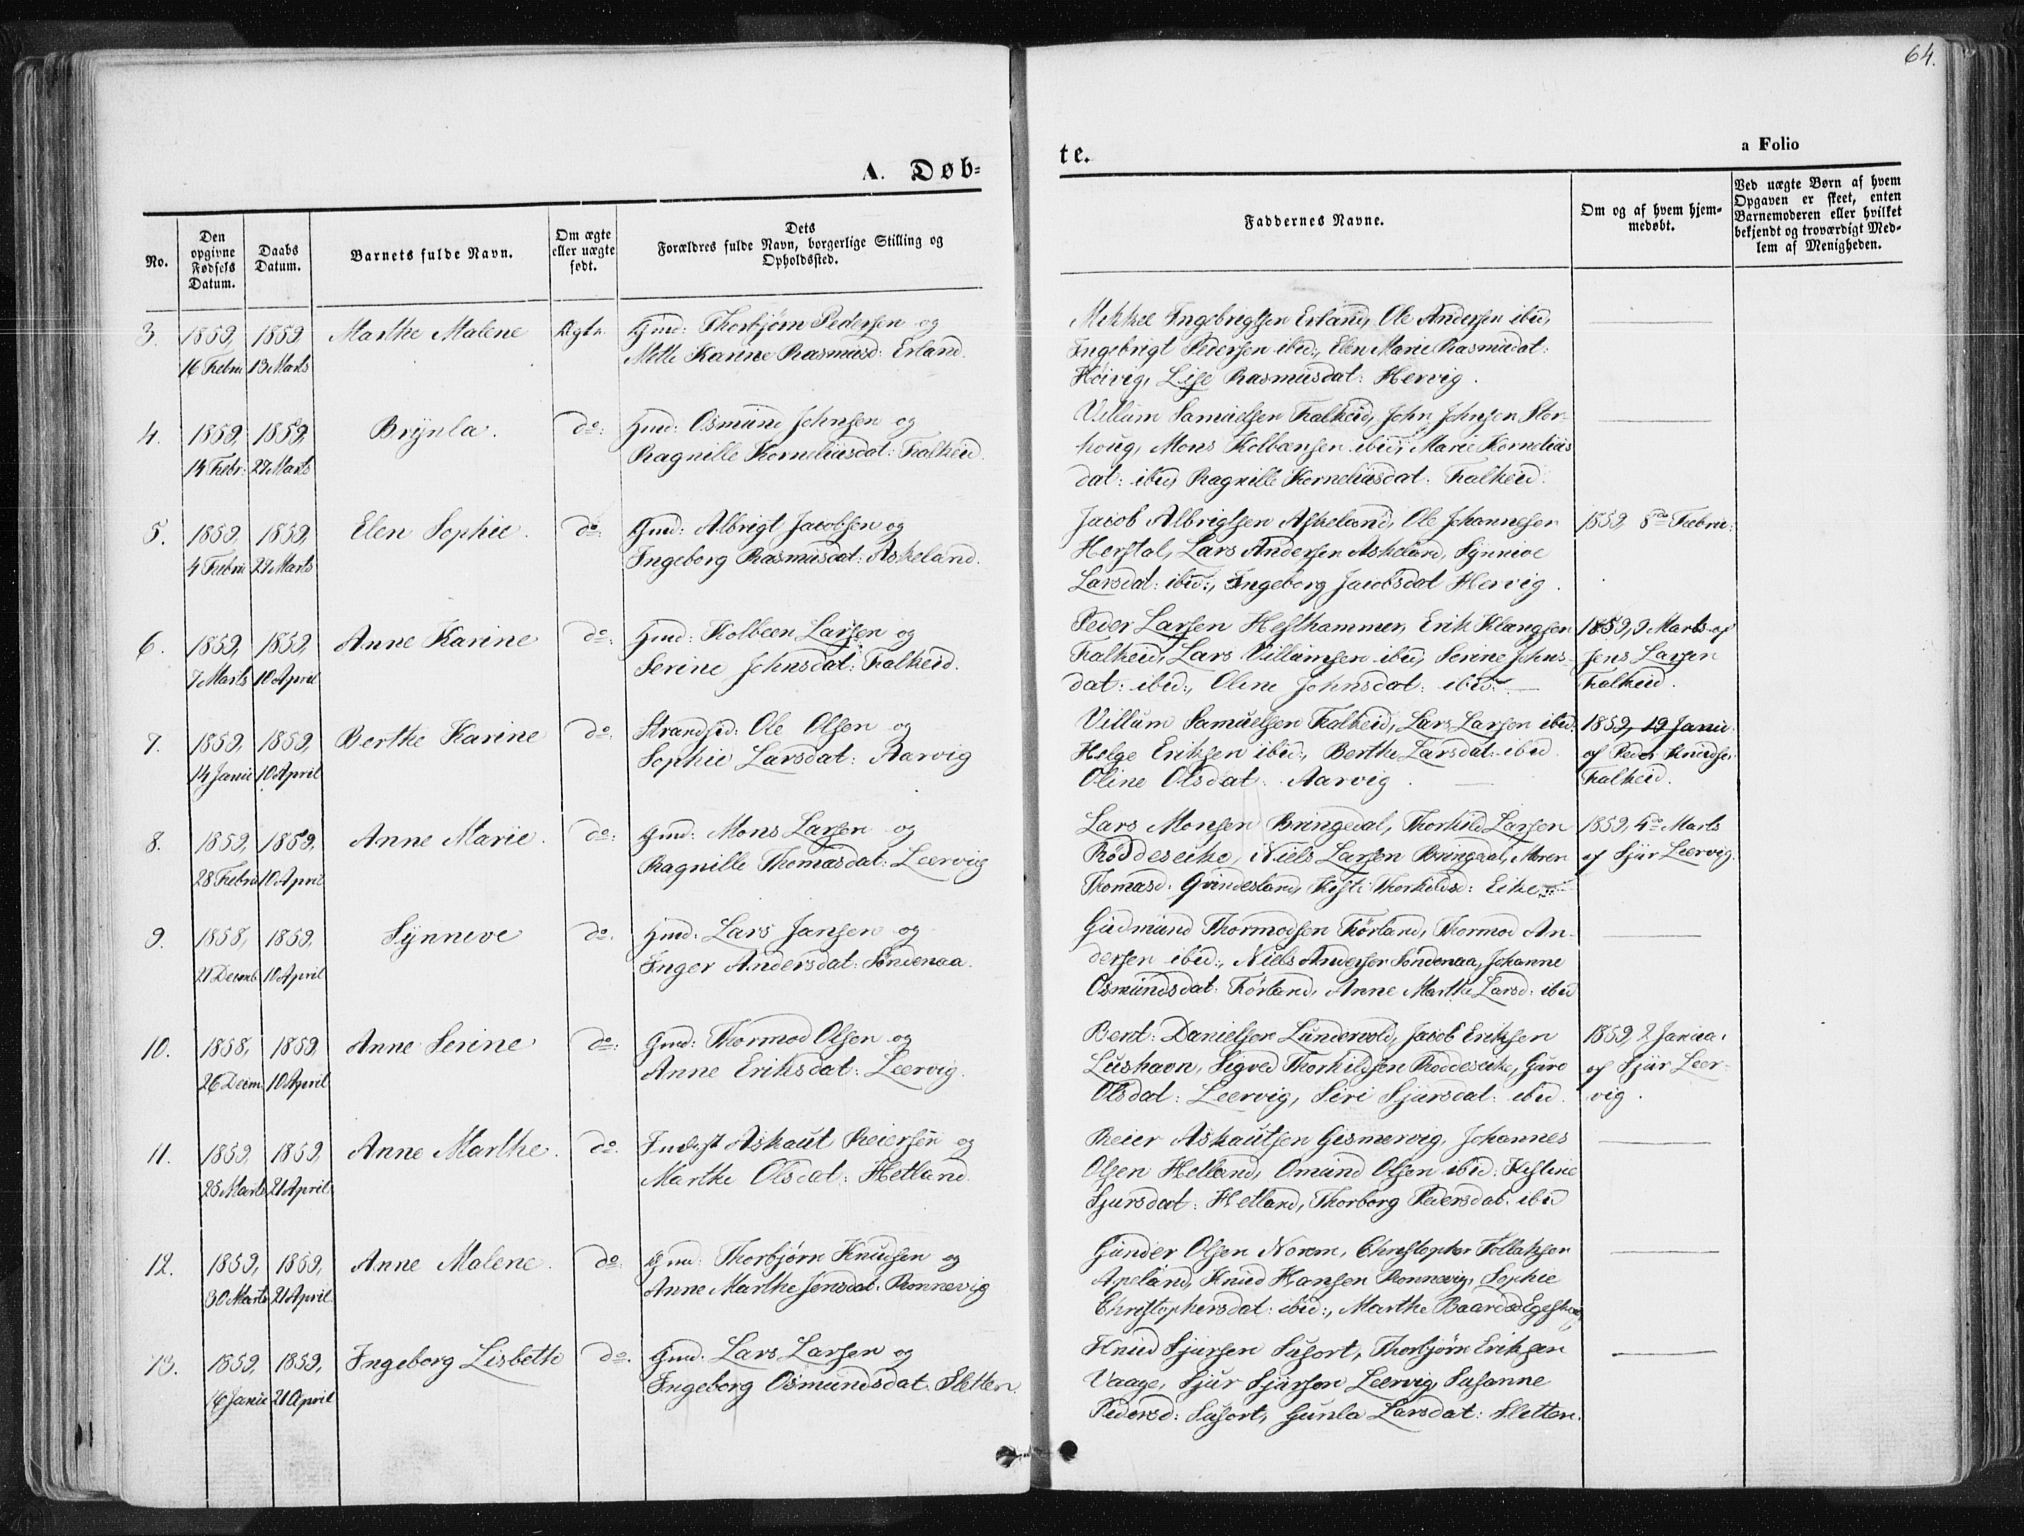 64.
A. Døb-
te.
a Folio
No.
Den
opgivne
Fødsels
Datum.
Daabs
Datum.
Barnets fulde Navn.
Om ægte
eller uægte
født.
Dets
Forældres fulde Navn, borgerlige Stilling og
Opholdssted.
Faddernes Navne.
Om og af hvem hjem-
medøbt.
Ved uægte Børn af hvem
Opgaven er skeet, enten
Barnemoderen eller hvilket
bekjendt og troværdigt Med-
lem af Menigheden.
3. 1859, 1859 Marthe Malene Ægte. Gmd: Thorbjørn Pedersen og
16 Febru 13 Marts Mette Karine Rasmusd: Erland.
Mikkel Ingebrigtsen Erland, Ole Andersen ibid,
Ingebrigt Pedersen ibid:, Elen Marie Rasmusdat:
Høivig, Lise Rasmusdat: Hervig.
4. 1859, 1859, Brynla. do: Gmd: Osmund Johnsen og
14 Febr: 27 Marts Ragnille Korneliusdat: Falkeid.
Villum Samuelsen Falkeid, John Johnsen Stor-
houg, Mons Kolbensen ibid, Marie Kornelius
dat: ibid, Ragnille Korneliusdat. Falkeid.
5. 1859, 1859, Elen Sophie. do: Gmd: Albrigt Jacobsen og
4 Febru 27 Marts Ingeborg Rasmusdat: Askeland.
Jacob Albrigtsen Askeland, Ole Johannesen 1859 8de Febru:
Herstal, Lars Andersen Askeland, Synnive
Larsdat: ibid:, Ingeborg Jacobsdat Hervig.
6. 1859, 1859, Anne Karine do: Gmd: Kolbeen Larsen og
7 Marts 10 April Serine Johnsdat: Falkeid.
Peder Larsen Hesthammer, Erik Klangsen 1859, 9 Marts af
Falkeid, Lars Villumsen ibid, Serine Johns- Jens Larsen
dat: ibid:, Oline Johnsdat: ibid: Falkeid.
7. 1859, 1859, Berthe Karine do: Strandsid: Ole Olsen og
14 Janu 10 April Sophie Larsdat: Aarvig
Villum Samuelsen Falkeid, Lars Larsen ibid: 1859, 19 Janu.
Helge Eriksen ibid:, Berthe Larsdat: ibid. af Peder Knudsen
Oline Olsdat: Aarvig. Falkeid.
8. 1859, 1859, Anne Marie. do: Gmd: Mons Larsen og
28 Febru 10 April Ragnille Thomasdat: Leervig
Lars Monsen Bringedal, Thorkild Larsen 1859, 4de Marts
Røddeseike, Niels Larsen Bringdal, Maren af Sjur Leervig.
Thomasd: Grindesland, Thorkildsd: Eike
9. 1858, 1859, Synneve do. Gmd: Lars Jansen og
21 Decmb 10 April Inger Andersdat: Søndenaa.
Gudmund Thormodsen Førland, Thormod An-
dersen ibid:, Niels Andersen Søndenaa, Johanne
Osmundsdat: Førland, Anne Marthe Larsd: ibid
10. 1858, 1859, Anne Serine do: Gmd: Thormod Olsen og
26 Decm 10 April Anne Eriksdat: Leervig.
Bent: Danielsen Lundevold, Jacob Eriksen 1859, 2 Janua.
Lushavn, Sigved Thorkildsen Røddeseike, Guro af Sjur Leer-
Olsdat: Leervig, Siri Sjursdat: ibid. vig.
11. 1859, 1859, Anne Marthe. do. Inderst Askaut Reiersen og
25 Marts 21 April Marthe Olsdat: Hetland.
Reier Askautsen Gismervig, Johannes
Olsen Hetland, Omund Olsen ibid: Kistine
Sjursdat: Hetland, Thorborg Pedersdat: ibid
12. 1859, 1859, Anne Malene. do: Gmd: Thorbjørn Knudsen og
30 Marts 21 April Anne Marthe Jensdat: Rønnevig
Gunder Olsen Norem, Christopher Tollaksen
Apeland, Knud Hansen Rønnevig, Sophie
Christophersdat: ibid:, Marthe Baardsd
13. 1859, 1859, Ingeborg Lisbeth do. Gmd: Lars Larsen og
16 Janu 21 April Ingeborg Osmundsdat: Sletten.
Knud Sjursen Susort, Thorbjørn Eriksen
Vaage, Sjur Sjursen Leervig, Susanne
Pedersd: Susort, Gunla Larsdat: Sletten.